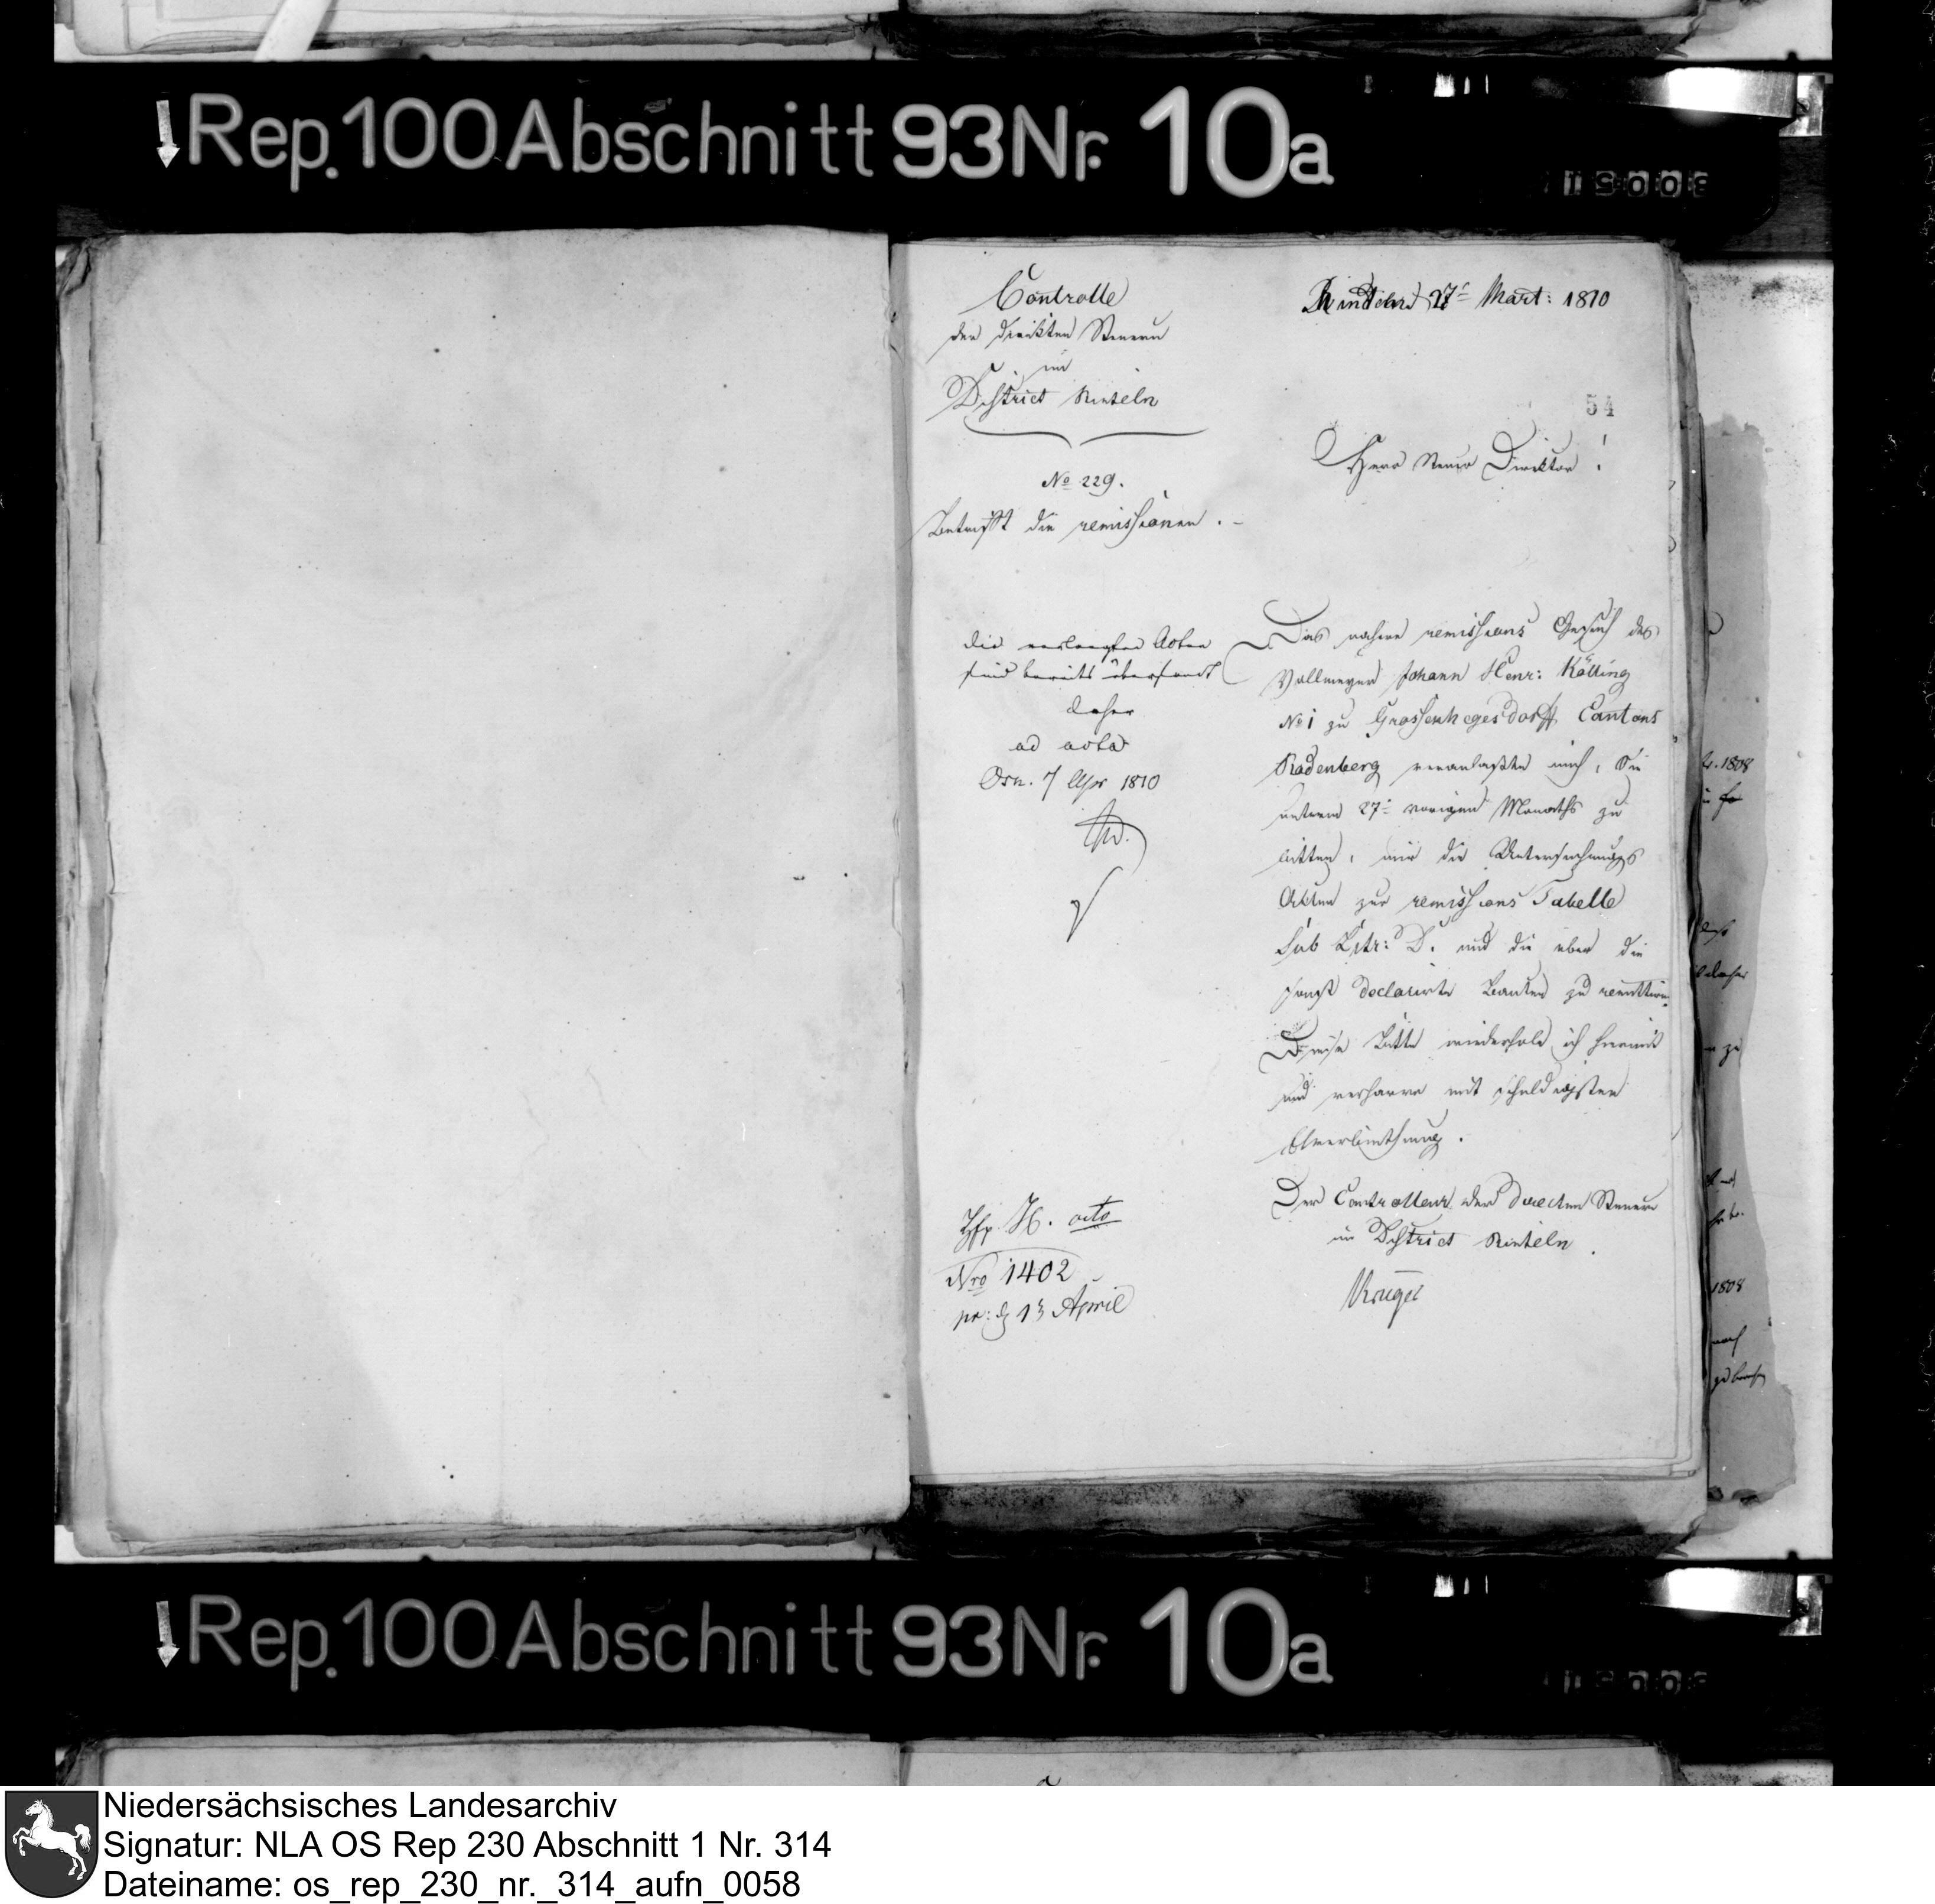 Rep. 100 Abschnitt 93 Nr. 10a
Controlle
der direkten Steuern
im
District Rinteln
No 229.
Betrifft die remissionen. -
27t Mart: 1810
54
Herr Steuer Direktor!
Die verlangten Acten
sind bereits übersandt
daher
ad acta
Osn. 7 Apr 1810
Das nahere remissions Gesuch des
Vollmeyer Johann Henr: Kölling
No 1 zu Grossenhegesdorff Cantons
Rodenberg veranlaßte mich, Sie
unterm 27t vorigen Monaths zu
bitten, mir die Untersuchungs
Akten zur remissions Tabelle
sub Littr: D. und die uber die
sonst declarirte Bauten zu remittiren.
Diese Bitte wiederhole ich hiermit
und verharre mit schuldigster
Ehrerbiethung.
Der Controlleur der directen Steuern
im District Rinteln.
Kruger
H. acta
Nro 1402
pr: d 13 April
Rep. 100 Abschnitt 93 Nr. 10a
Niedersächsisches Landesarchiv
Signatur: NLA OS Rep 230 Abschnitt 1 Nr. 314
Dateiname: os_rep_230_nr._314_aufn_0058